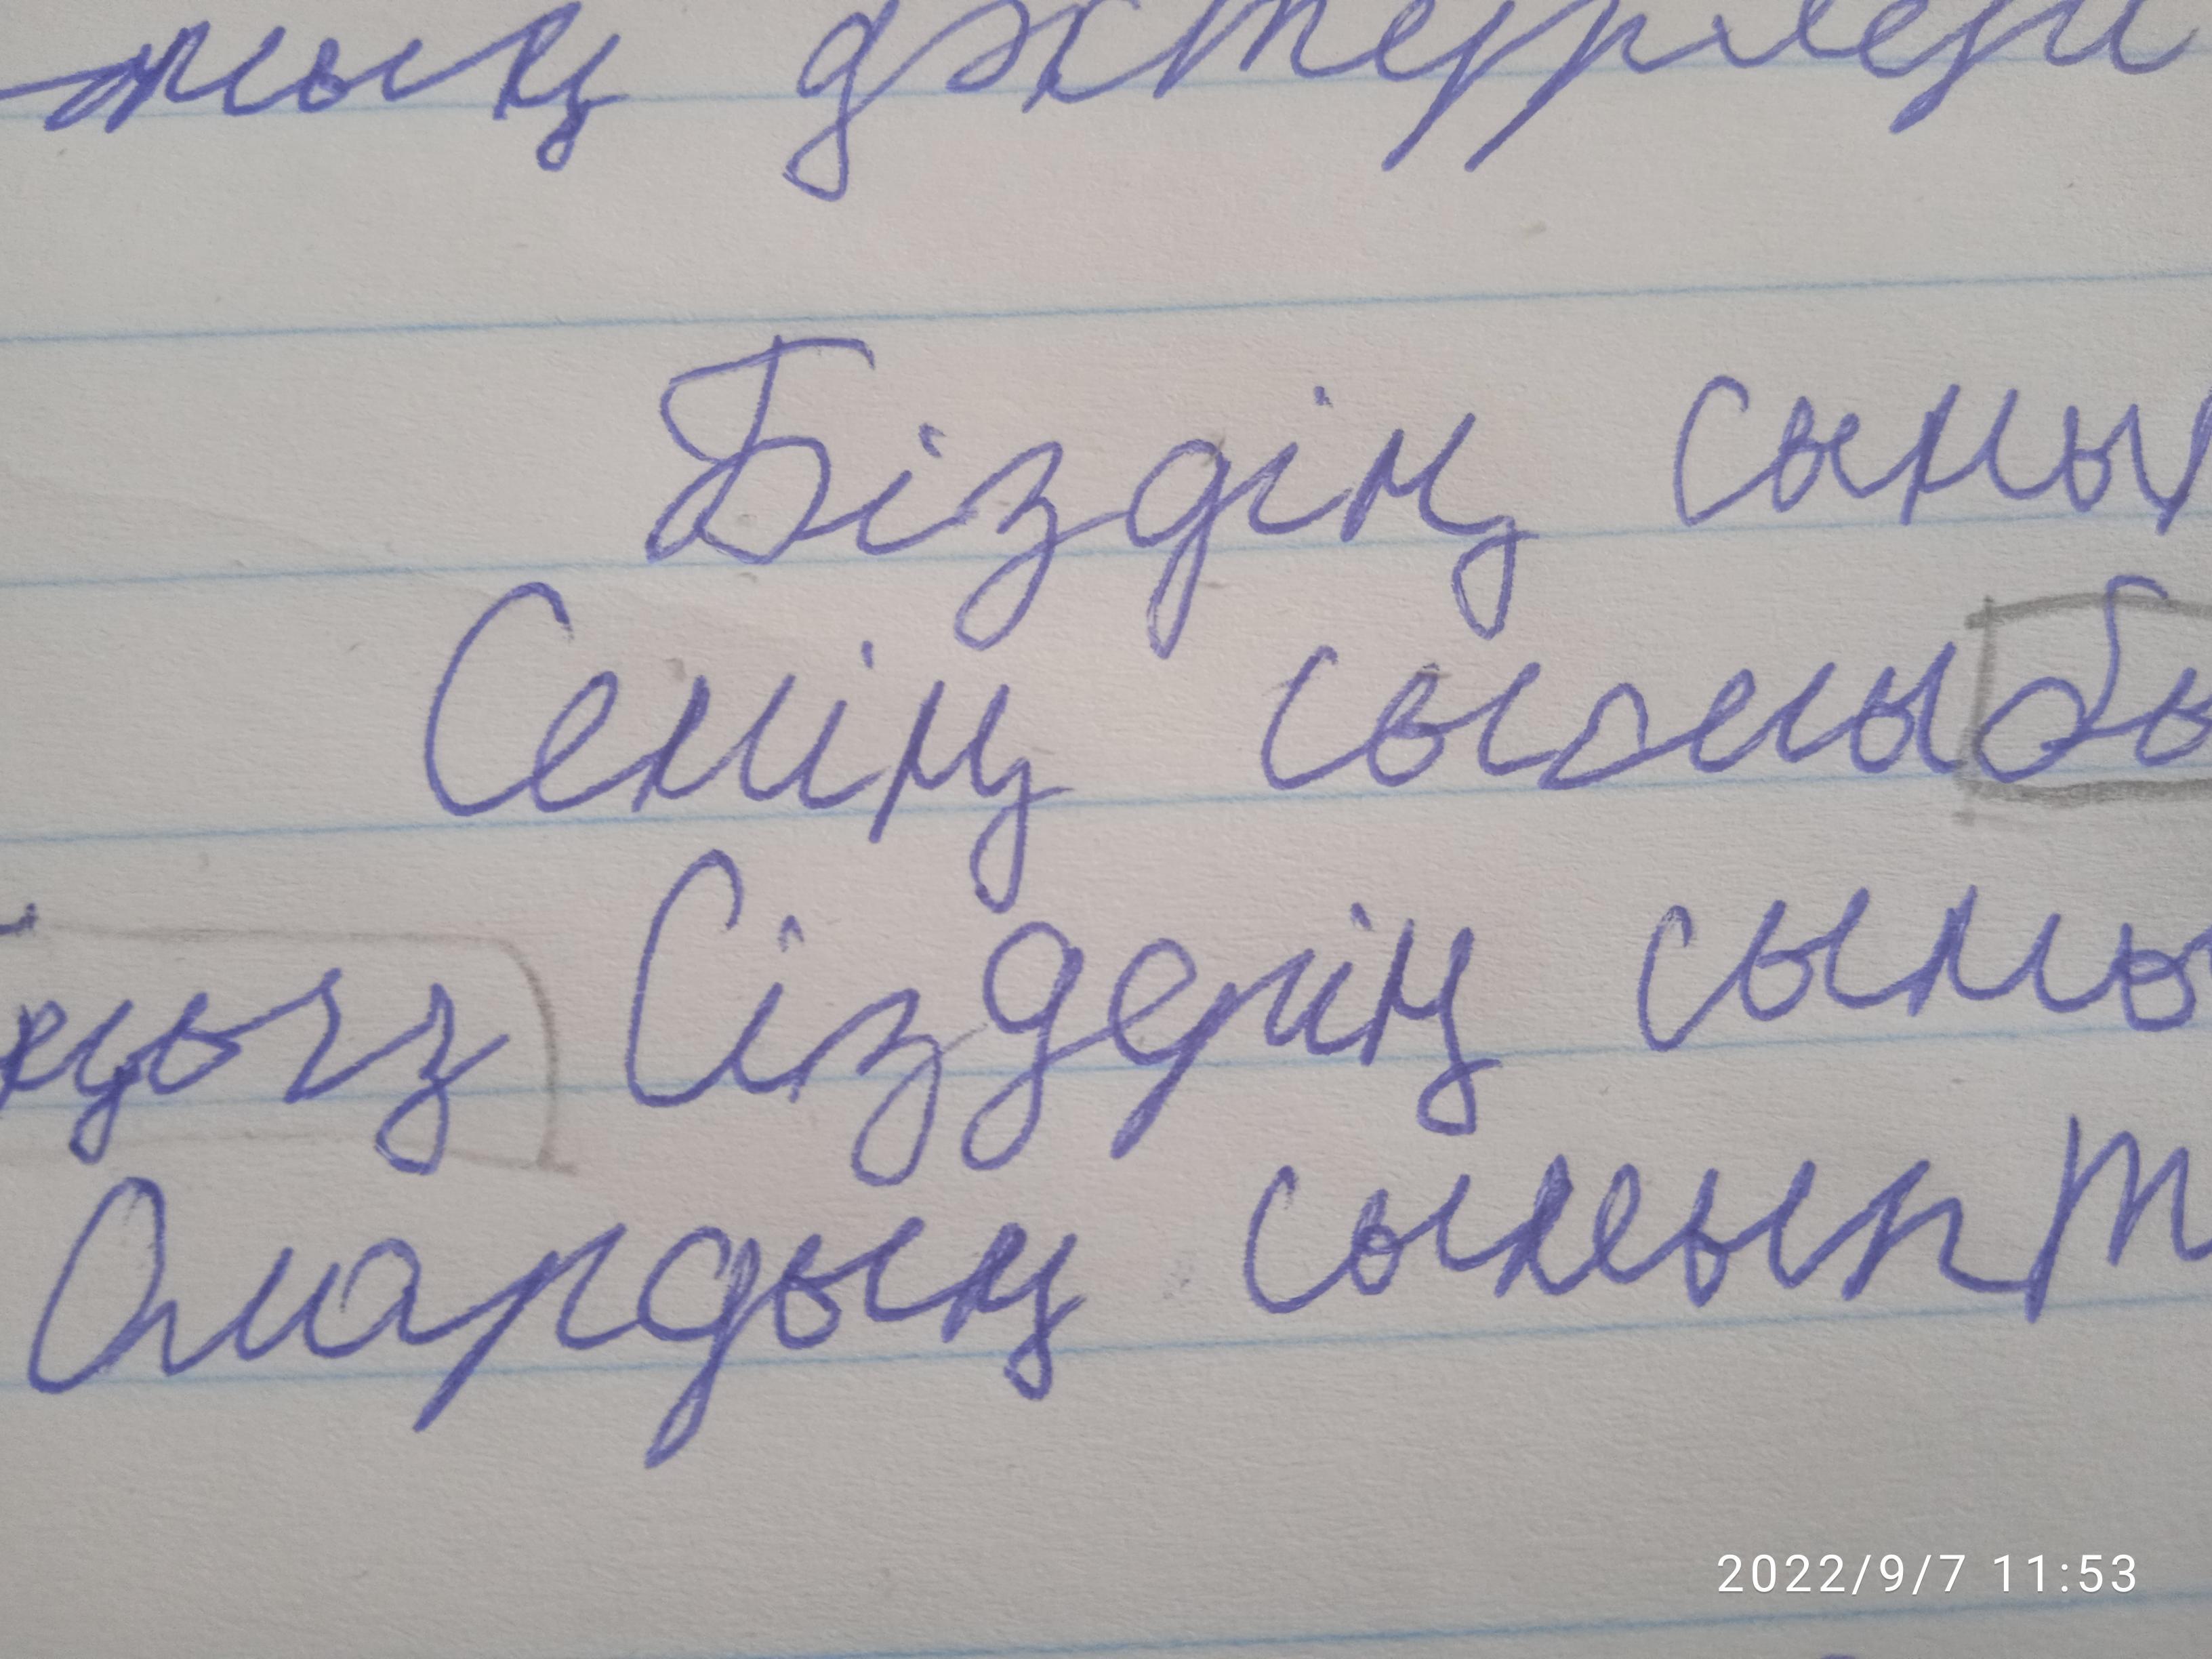 ның дәптерлері
Біздің сыны
Сенің сыныбы
ңыз Сіздерің сыны
Олардың сынып т
2022/9/7 11:53